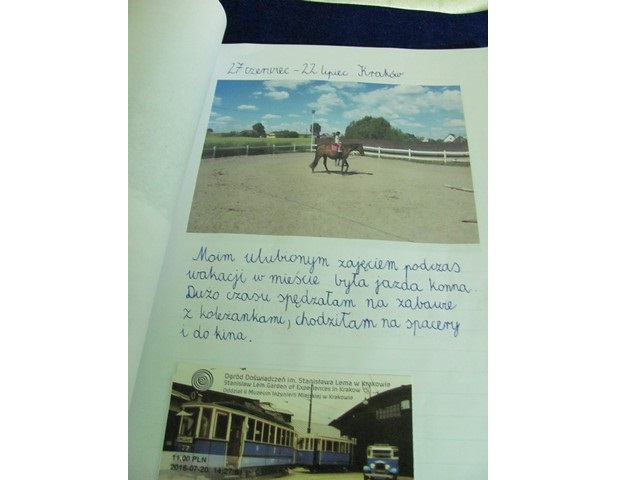 27 czerwiec - 22 lipiec Kraków
Moim ulubionym zajęciem podczas
wakacji w mieście była jazda konna
Dużo czasu spędzałam na zabawie
z koleżankami, chodziłam na spacery
i do kina.
Ogród Doświadczeń im. Stanisława Lema w Krakowie
Stanislaw Lem Garden of Experiences in Krakow
Oddział II Muzeum Inżynierii Miejskiej w Krakowie
11,00 PLN
2016-07-20, 14:27